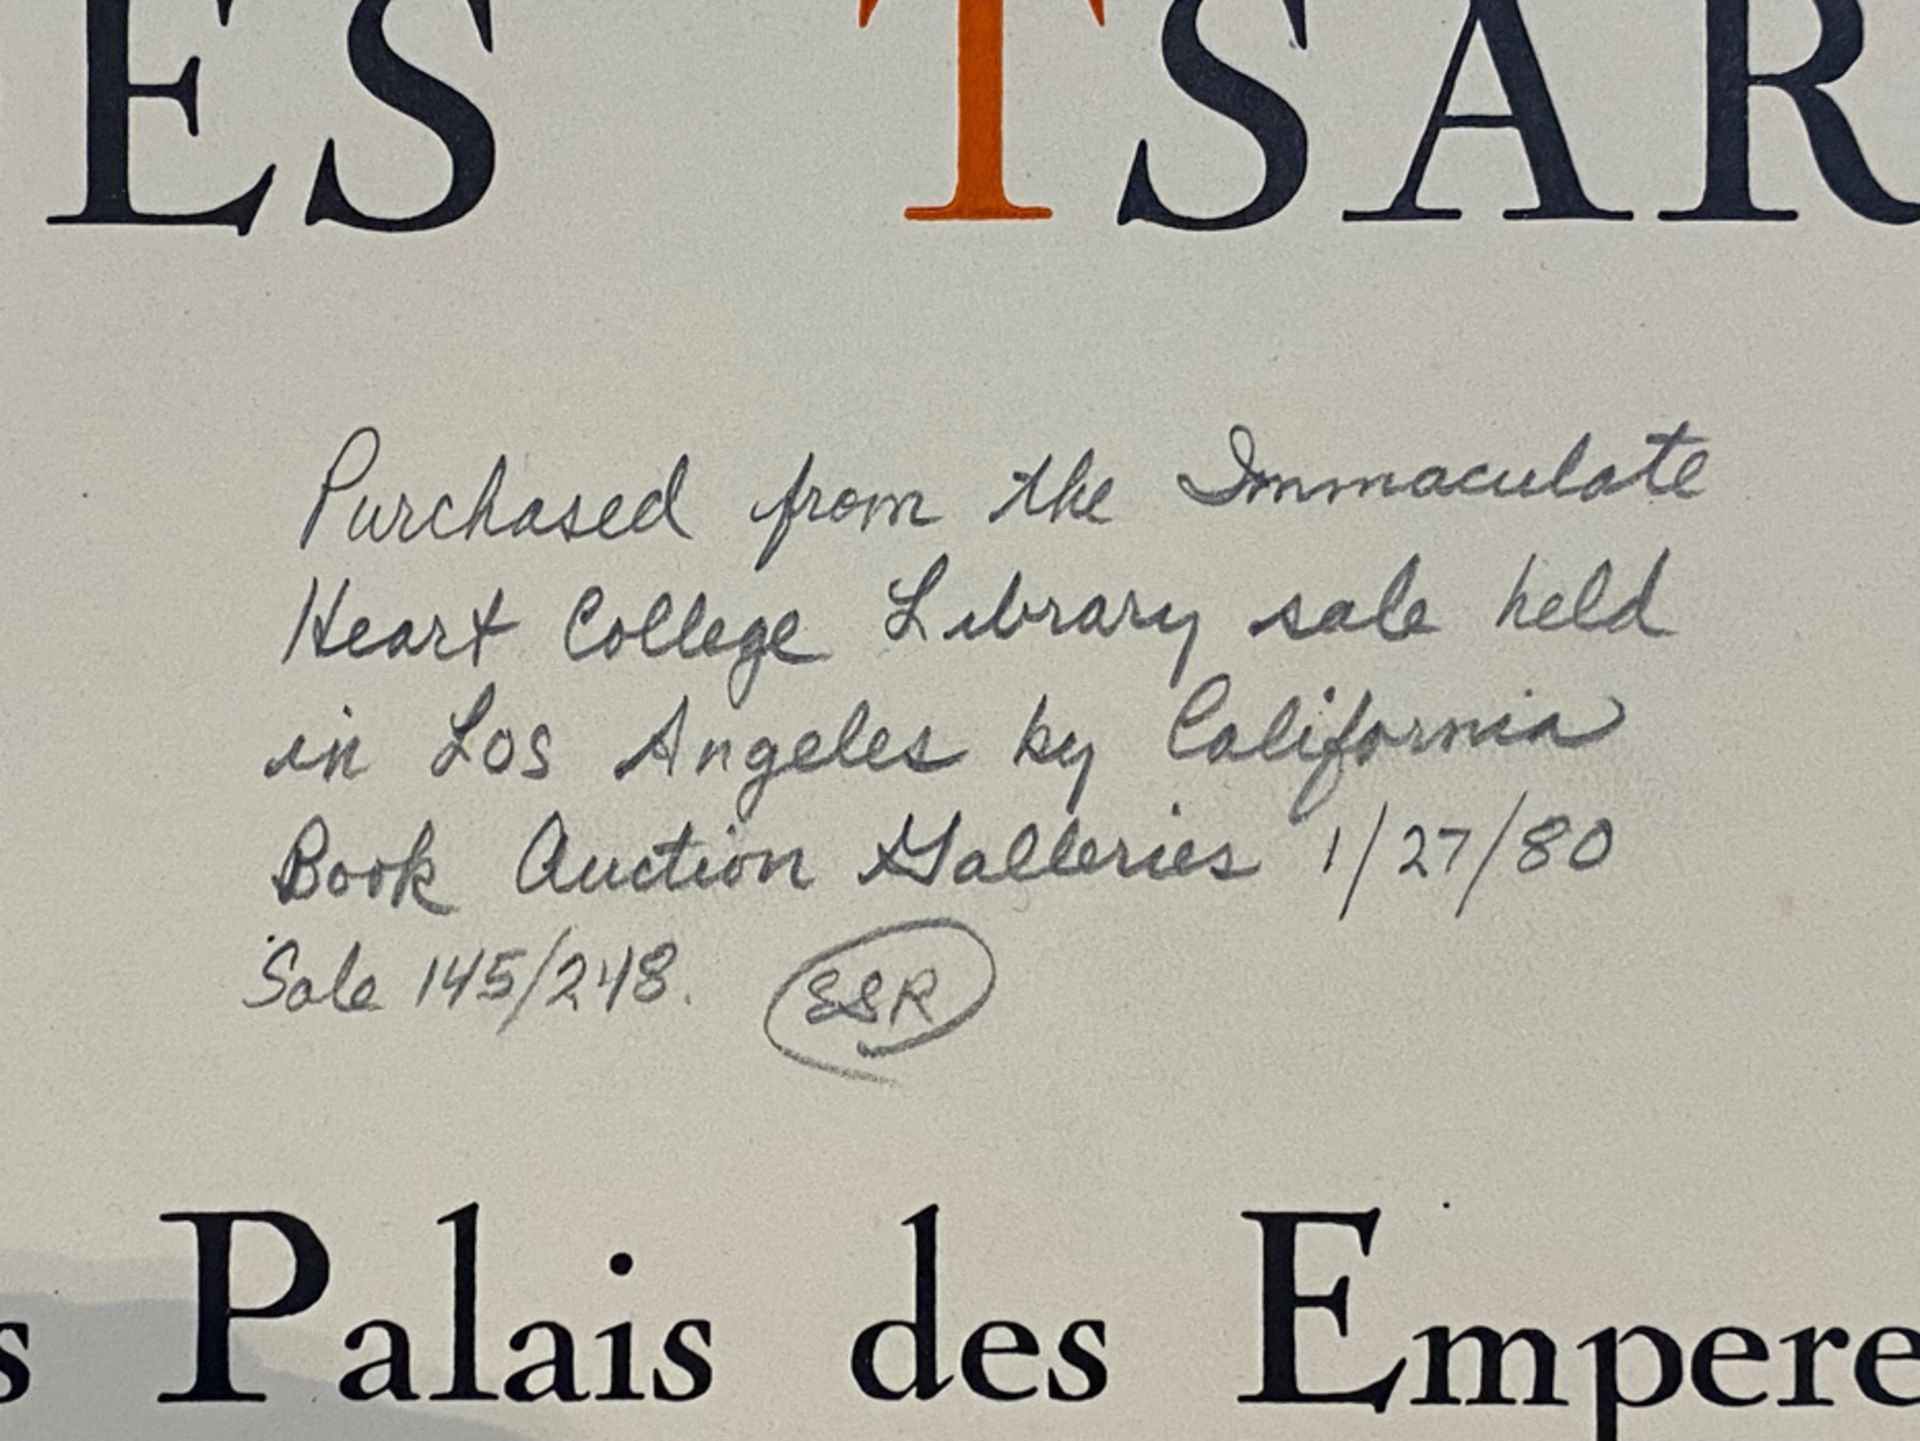 ES TSAR
Purchased from the Immaculate
Heart College Library sale held
in Los Angeles by California
Book Auction Galleries 1/27/80
Sale 145/248. ESR
s Palais des Empere